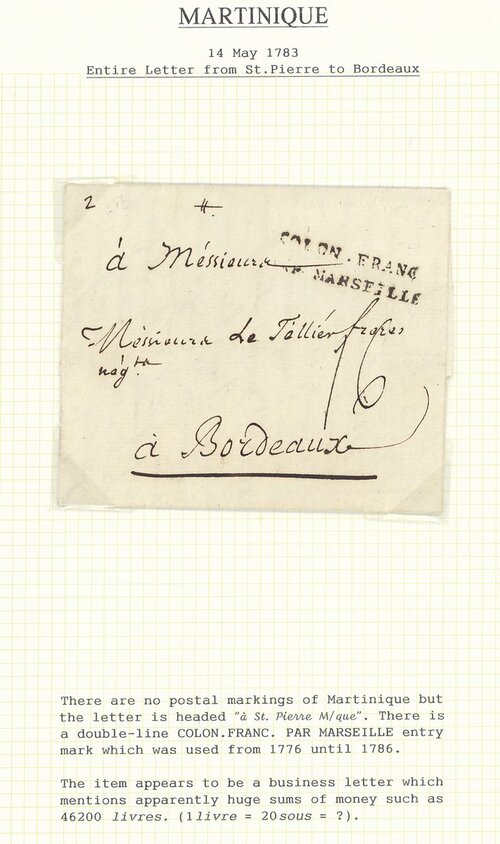 MARTINIQUE
14 May 1783
Entire Letter from St.Pierre to Bordeaux
2
à Méssieurs
COLON. FRANC
PAR MARSEILLE
Méssieurs Le Téllier freres
négts
16
à Bordeaux
There are no postal markings of Martinique but
the letter is headed "à St. Pierre M/que". There is
a double-line COLON.FRANC. PAR MARSEILLE entry
mark which was used from 1776 until 1786.
The item appears to be a business letter which
mentions apparently huge sums of money such as
46200 livres. (1livre = 20sous = ?).